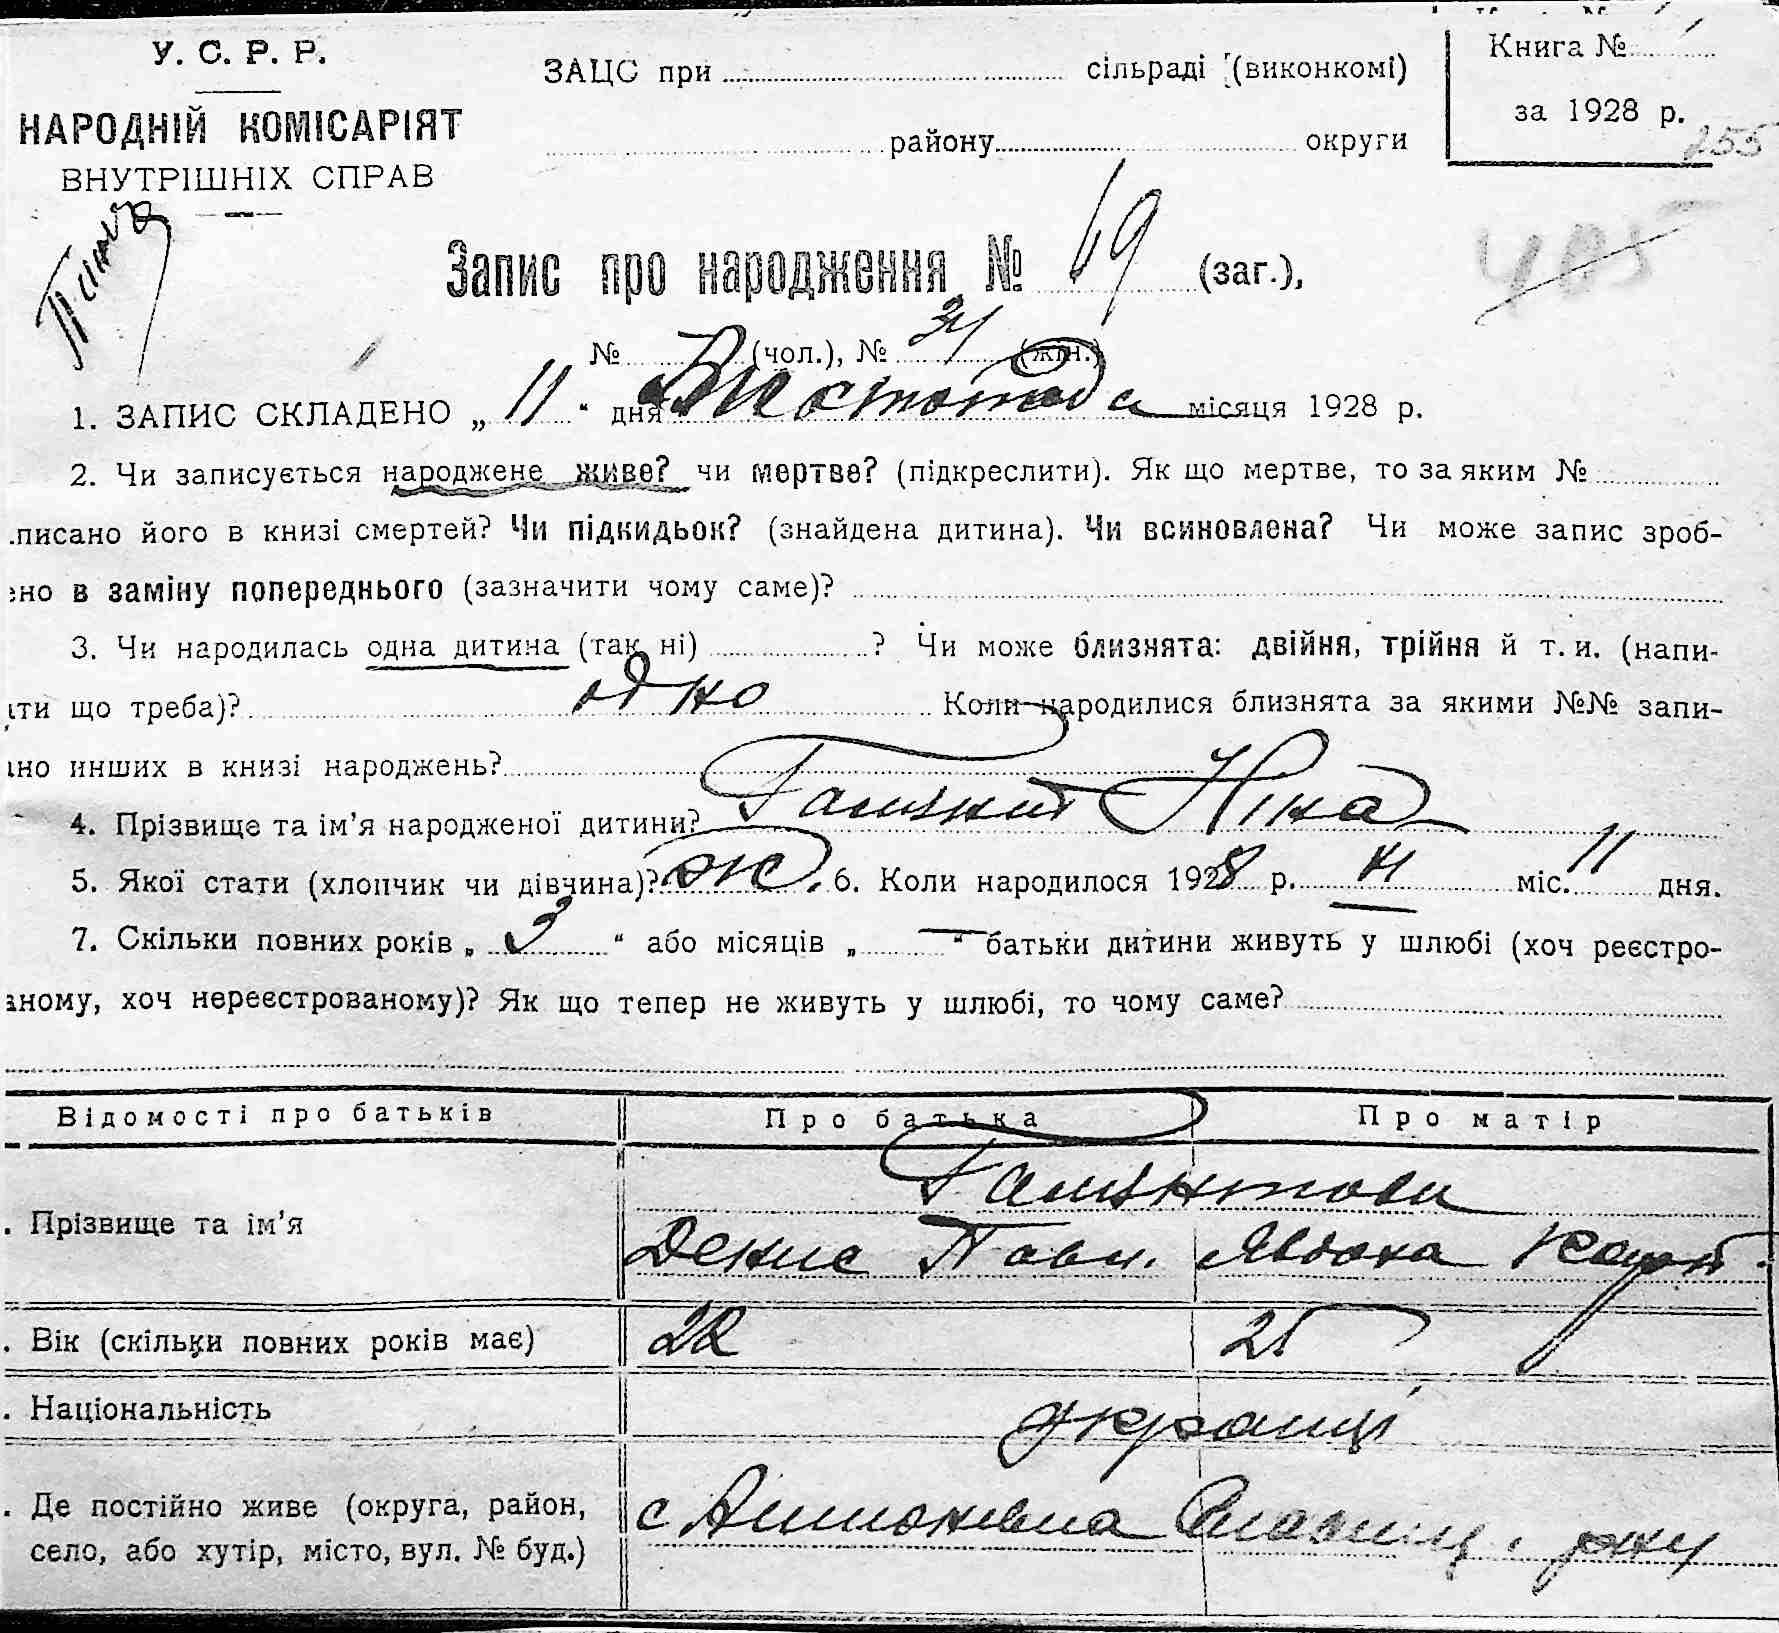 У. С. Р. Р.
НАРОДНІЙ КОМІСАРІЯТ
ВНУТРІШНІХ СПРАВ
ЗАЦС при сільраді (виконкомі)
району округи
Книга №
за 1928 р.
255
Запис про народження № 69 (заг.),
№ (чол.), № 34 (жін.)
1. ЗАПИС СКЛАДЕНО „ 11 “ дня Листопада місяця 1928 р.
2. Чи записується народжене живе? чи мертве? (підкреслити). Як що мертве, то за яким №
писано його в книзі смертей? Чи підкидьок? (знайдена дитина). Чи всиновлена? Чи може запис зроб-
ено в заміну попереднього (зазначити чому саме)?
3. Чи народилась одна дитина (так, ні) ? Чи може близнята: двійня, трійня й т. и. (напи-
ати що треба)? одно Коли народилися близнята за якими №№ запи-
ано инших в книзі народжень?
4. Прізвище та ім’я народженої дитини? Ніна
5. Якої стати (хлопчик чи дівчина)? ж. 6. Коли народилося 1928 р. XI міс. 11 дня.
7. Скільки повних років „ 3 “ або місяців „ — “ батьки дитини живуть у шлюбі (хоч реєстро-
аному, хоч нереєстрованому)? Як що тепер не живуть у шлюбі, то чому саме?
Відомості про батьків Про батька Про матір
. Прізвище та ім’я
Денис Павл. Явдоха Карп.
. Вік (скільки повних років має) 22 25
. Національність украінці
. Де постійно живе (округа, район,
село, або хутір, місто, вул. № буд.)